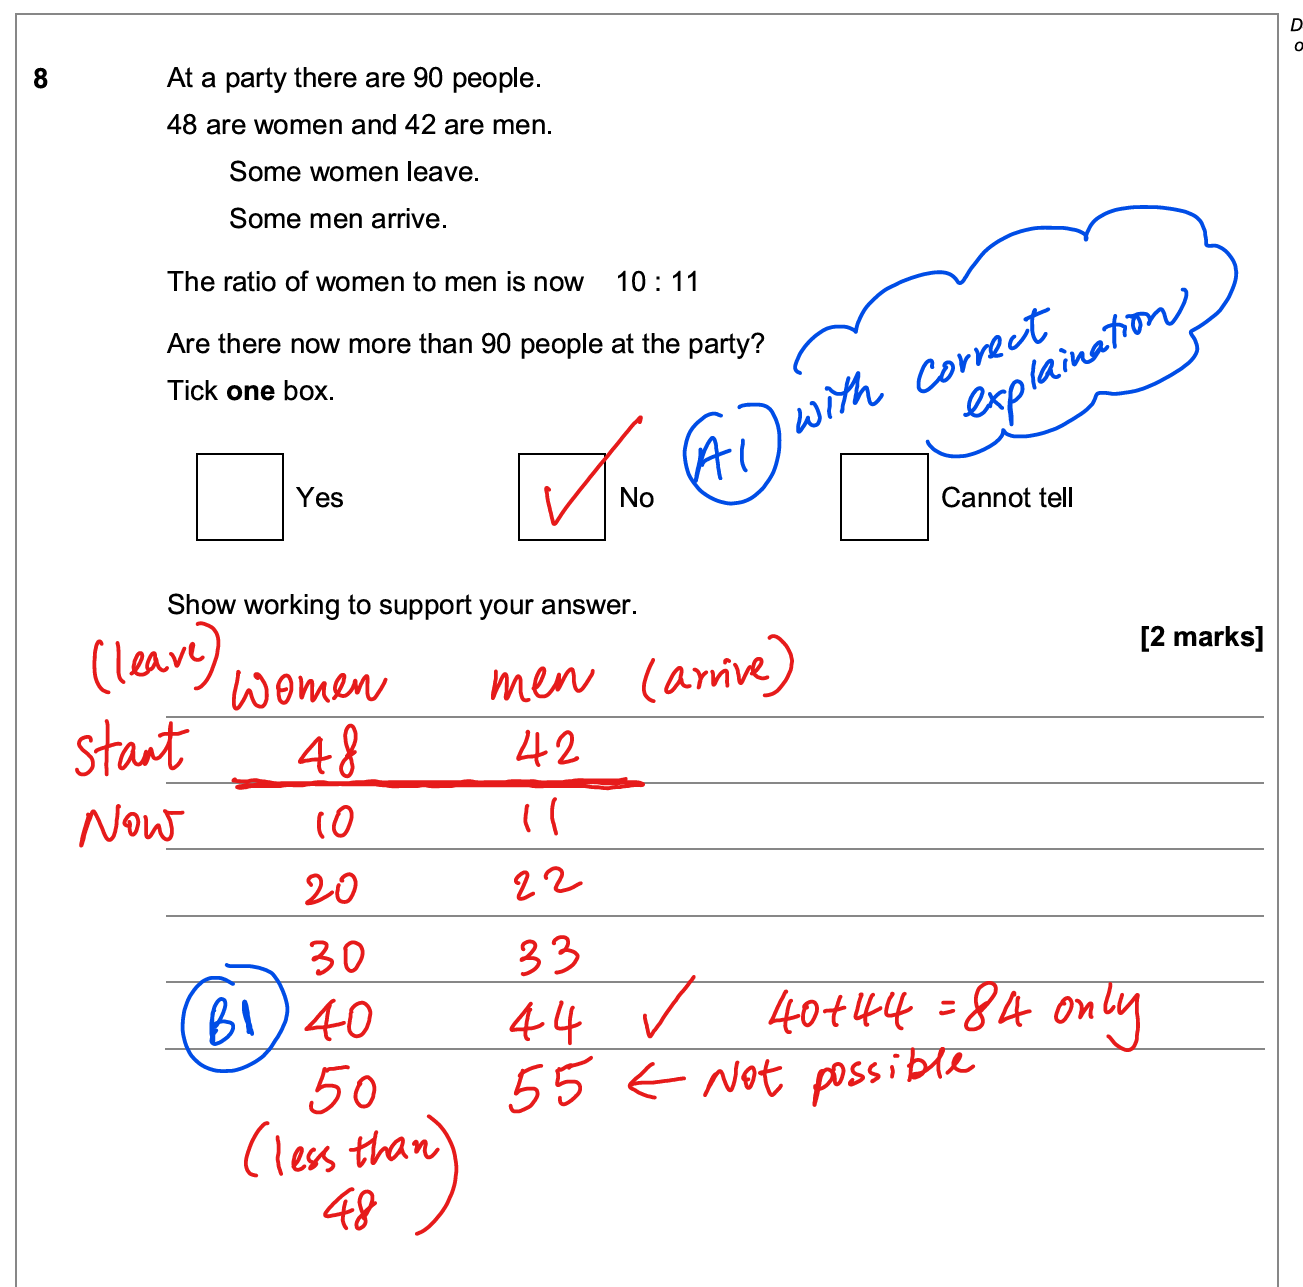 D
o
8 At a party there are 90 people.
48 are women and 42 are men.
Some women leave.
Some men arrive.
The ratio of women to men is now 10 : 11
Are there now more than 90 people at the party?
Tick one box.
A1 with correct
explaination
Yes No Cannot tell
Show working to support your answer.
[2 marks]
(leave) women men (arrive)
Start 48 42
Now 10 11
20 22
30 33
B1 40 44 ✓ 40+44 = 84 only
50 55 ← Not possible
(less than
48)